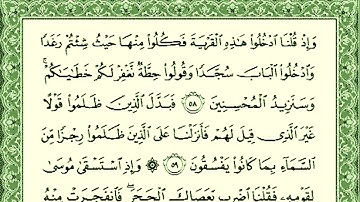 وَإِذْ قُلْنَا ٱدْخُلُوا۟ هَـٰذِهِ ٱلْقَرْيَةَ فَكُلُوا۟ مِنْهَا حَيْثُ شِئْتُمْ رَغَدًا
وَٱدْخُلُوا۟ ٱلْبَابَ سُجَّدًا وَقُولُوا۟ حِطَّةٌ نَّغْفِرْ لَكُمْ خَطَـٰيَـٰكُمْ ۚ
وَسَنَزِيدُ ٱلْمُحْسِنِينَ ٥٨ فَبَدَّلَ ٱلَّذِينَ ظَلَمُوا۟ قَوْلًا
غَيْرَ ٱلَّذِى قِيلَ لَهُمْ فَأَنزَلْنَا عَلَى ٱلَّذِينَ ظَلَمُوا۟ رِجْزًا مِّنَ
ٱلسَّمَآءِ بِمَا كَانُوا۟ يَفْسُقُونَ ٥٩ ۞ وَإِذِ ٱسْتَسْقَىٰ مُوسَىٰ
لِقَوْمِهِۦ فَقُلْنَا ٱضْرِب بِّعَصَاكَ ٱلْحَجَرَ ۖ فَٱنفَجَرَتْ مِنْهُ